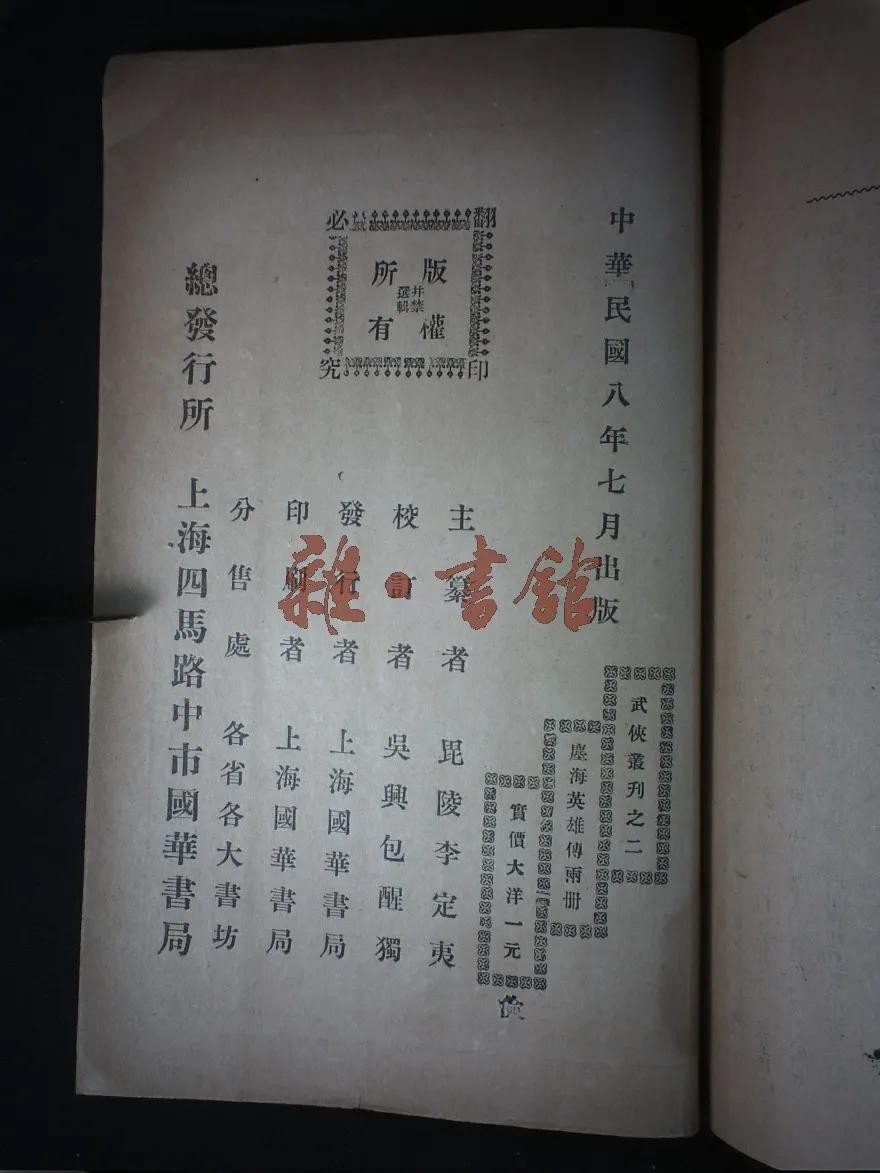 中華民國八年七月出版
武俠叢刋之二
塵海英雄傳兩册
實價大洋一元
翻印必究
版權所有
并禁選輯
主纂者 毘陵李定夷
校訂者 吳興包醒獨
發行者 上海國華書局
印刷者 上海國華書局
分售處 各省各大書坊
總發行所 上海四馬路中市國華書局
雜·書館